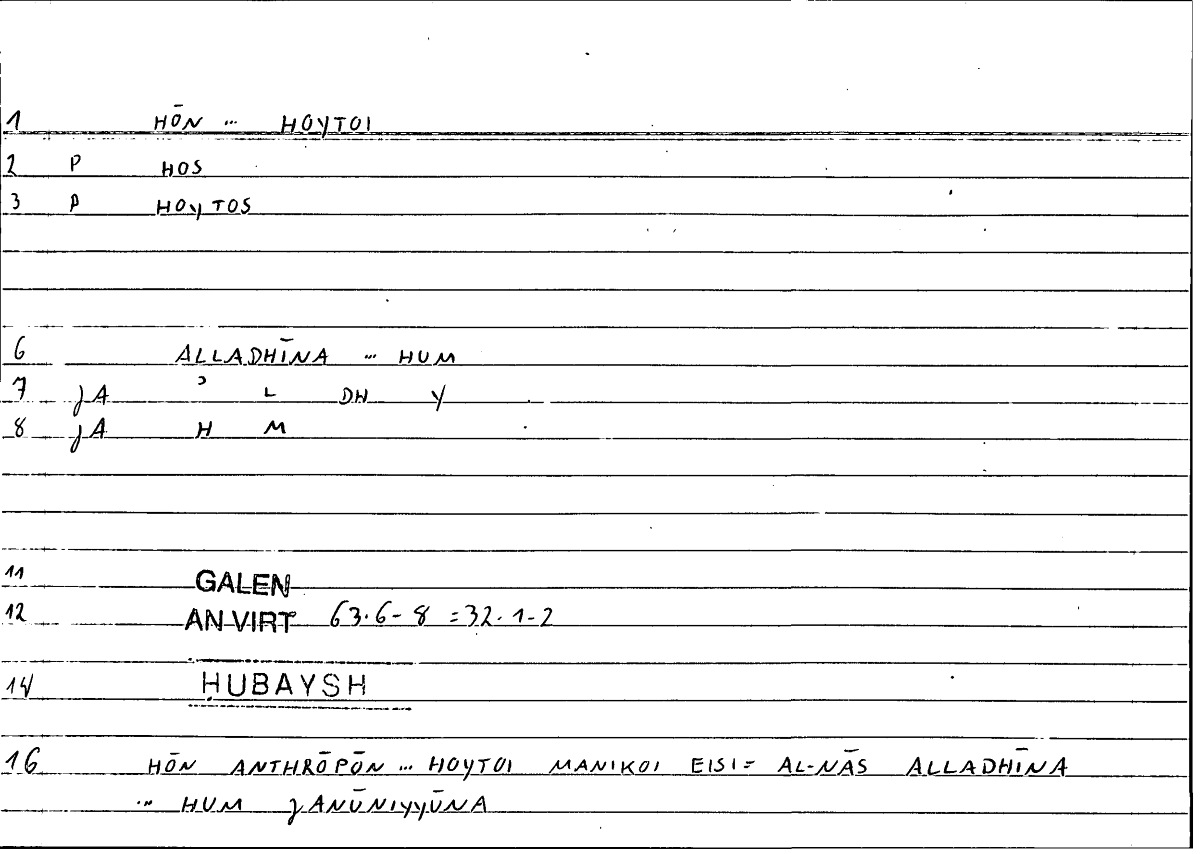 1 HŌN … HOYTOI
2 P HOS
3 P HOYTOS
6 ALLADHĪNA … HUM
7 jA ʾ L DH Y
8 jA H M
11 GALEN
12 AN VIRT 63.6-8 = 32.1-2
14 ḤUBAYSH
16 HŌN ANTHRŌPŌN … HOYTOI MANIKOI EISI = AL-NĀS ALLADHĪNA
… HUM jANŪNIYYŪNA